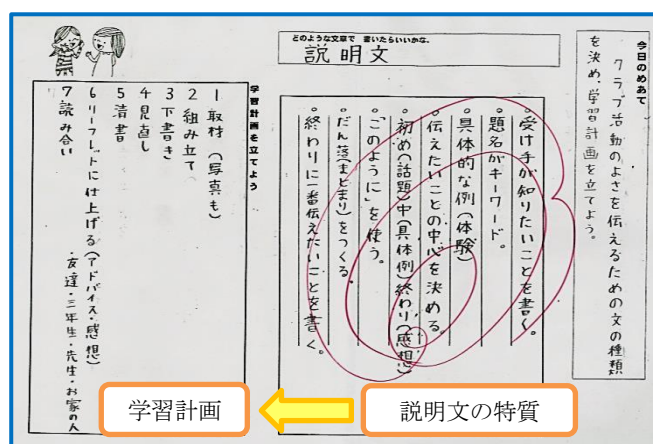 今日のめあて
クラブ活動のよさを伝えるための文の種類
を決め、学習計画を立てよう。
どのような文章で 書いたらいいかな。
説明文
。受け手が知りたいことを書く。
。題名がキーワード。
。具体的な例(体験)
。伝えたいことの中心を決める。
。初め(話題)中(具体例)終わり(感想)
。「このように」を使う。
。だん落(まとまり)をつくる。
。終わりに一番伝えたいことを書く。
学習計画を立てよう
1 取材 (写真も)
2 組み立て
3 下書き
4 見直し
5 清書
6 リーフレットに仕上げる(アドバイス・感想)
7 読み合い
・友達・三年生・先生・お家の人
学習計画
説明文の特質